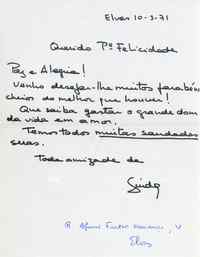 Elvas 10-3-71
Querido Pe Felicidade
Paz e Alegria!
Venho desejar-lhe muitos parabéns
cheios do melhor que houver!
Que saiba gastar o grande dom
da vida em amor.
Temos todos muitas saudades
suas.
Toda amizade da
R
Elvas